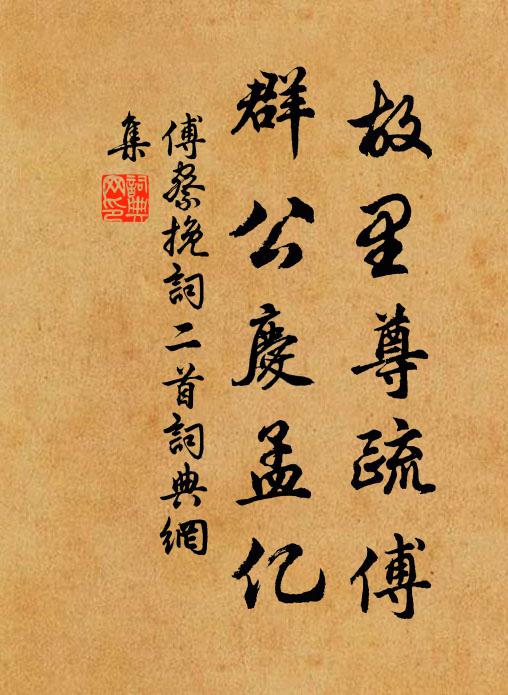 故里尊疏傅
群公慶孟亿
傅察挽詞二首詞典網
集
詞典
网印